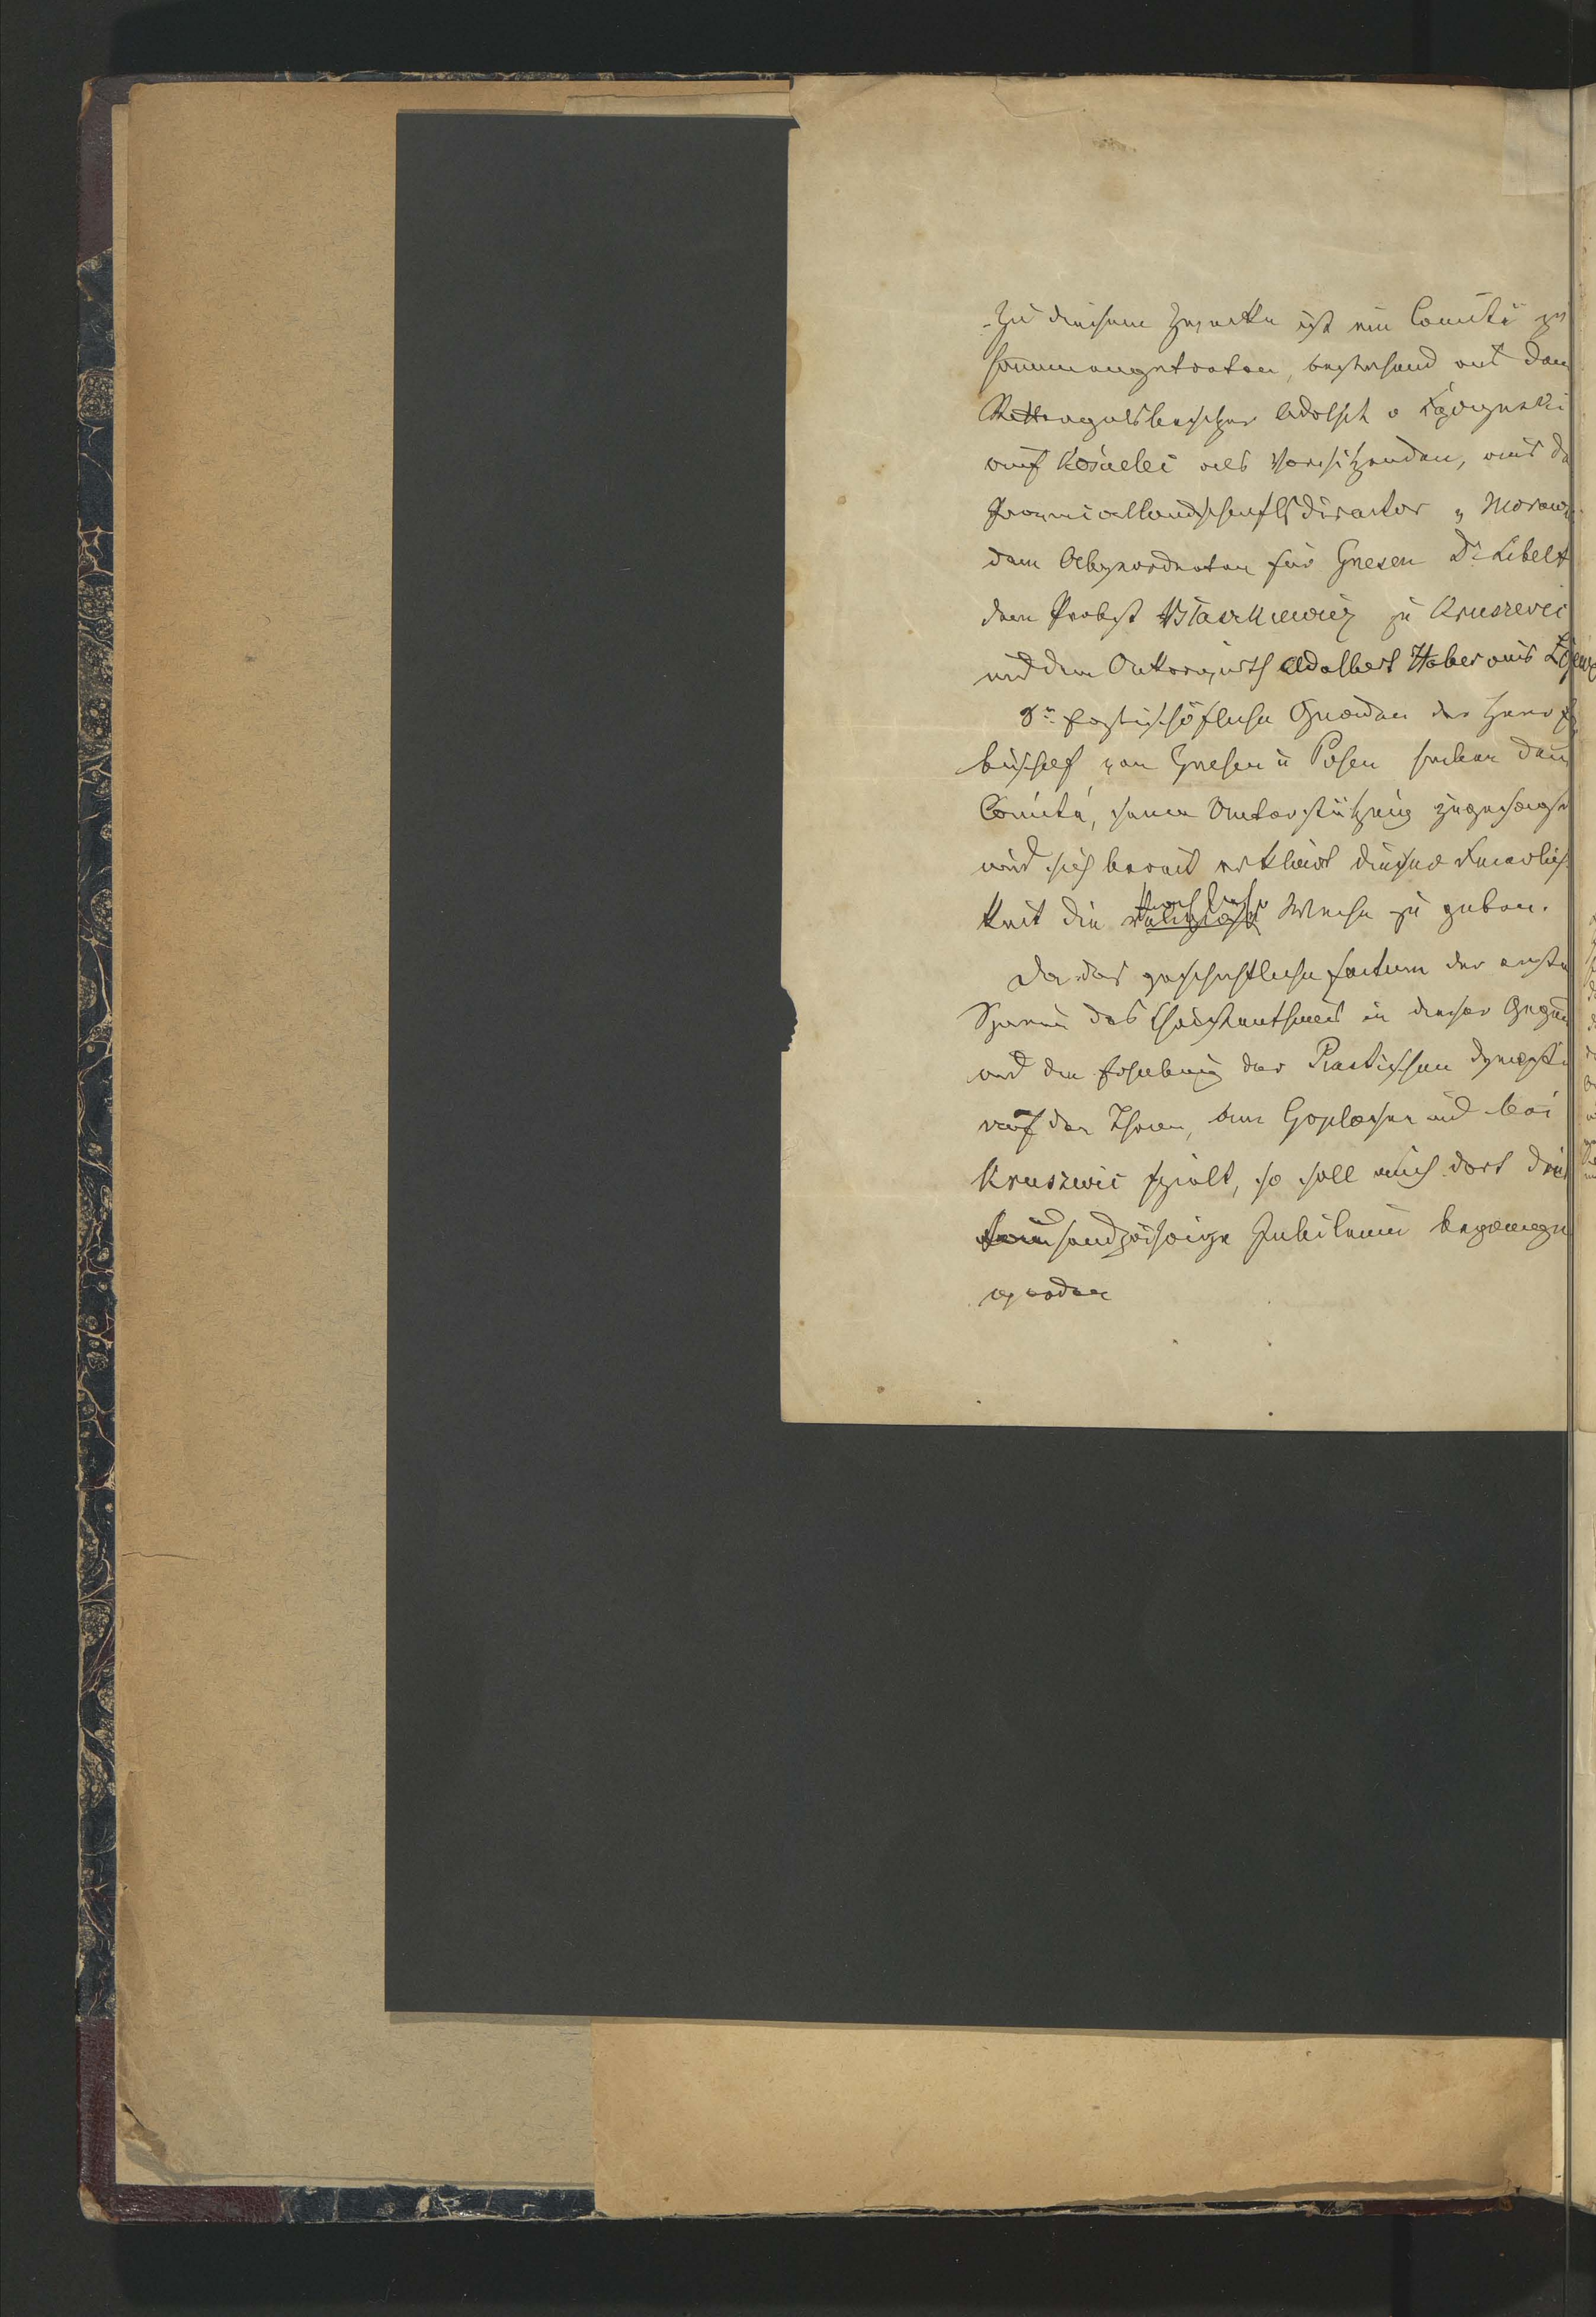 Zu diesem Zwecke ist ein Comité zu
sammengetreten, bestehend aus dem
Rittergutsbesitzer Adolph v Łączyński
auf Kościelec als Vorsitzenden, aus de
Provinciallandschaftsdirector v Moraws
dem Abgeordneten für Gnesen Dr Libelt
dem Probst Błaszkiewicz zu Kruszwic
und dem Ackerwirth Adalbert Haber aus
Sr Erzbischöfliche Gnaden der Herr Erz
bischof von Gnesen u Posen haben dem
Comité, seine Unterstützung zugesagt
und sich bereit erklärt dieser Feierlich
keit die kirchliche Weihe zu geben.
Da das geschichtliche factum der ersten
Spuren des Christenthums in dieser Gegend
und die Erhebung der Piastischen Dynastie
auf den Thron, am Goplosee und bei
Kruszwic spielt, so soll auch dort das
tausendjährige Jubileum begangen
werden